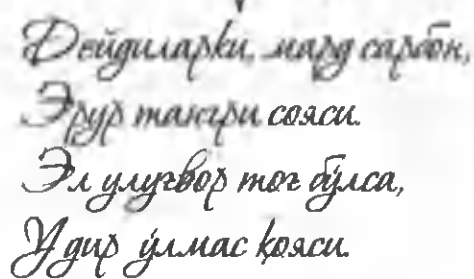 Дейдиларки, мард сарбон,
Эрур тангри сояси.
Эл улуғвор тоғ бўлса,
У дир ўлмас қояси.